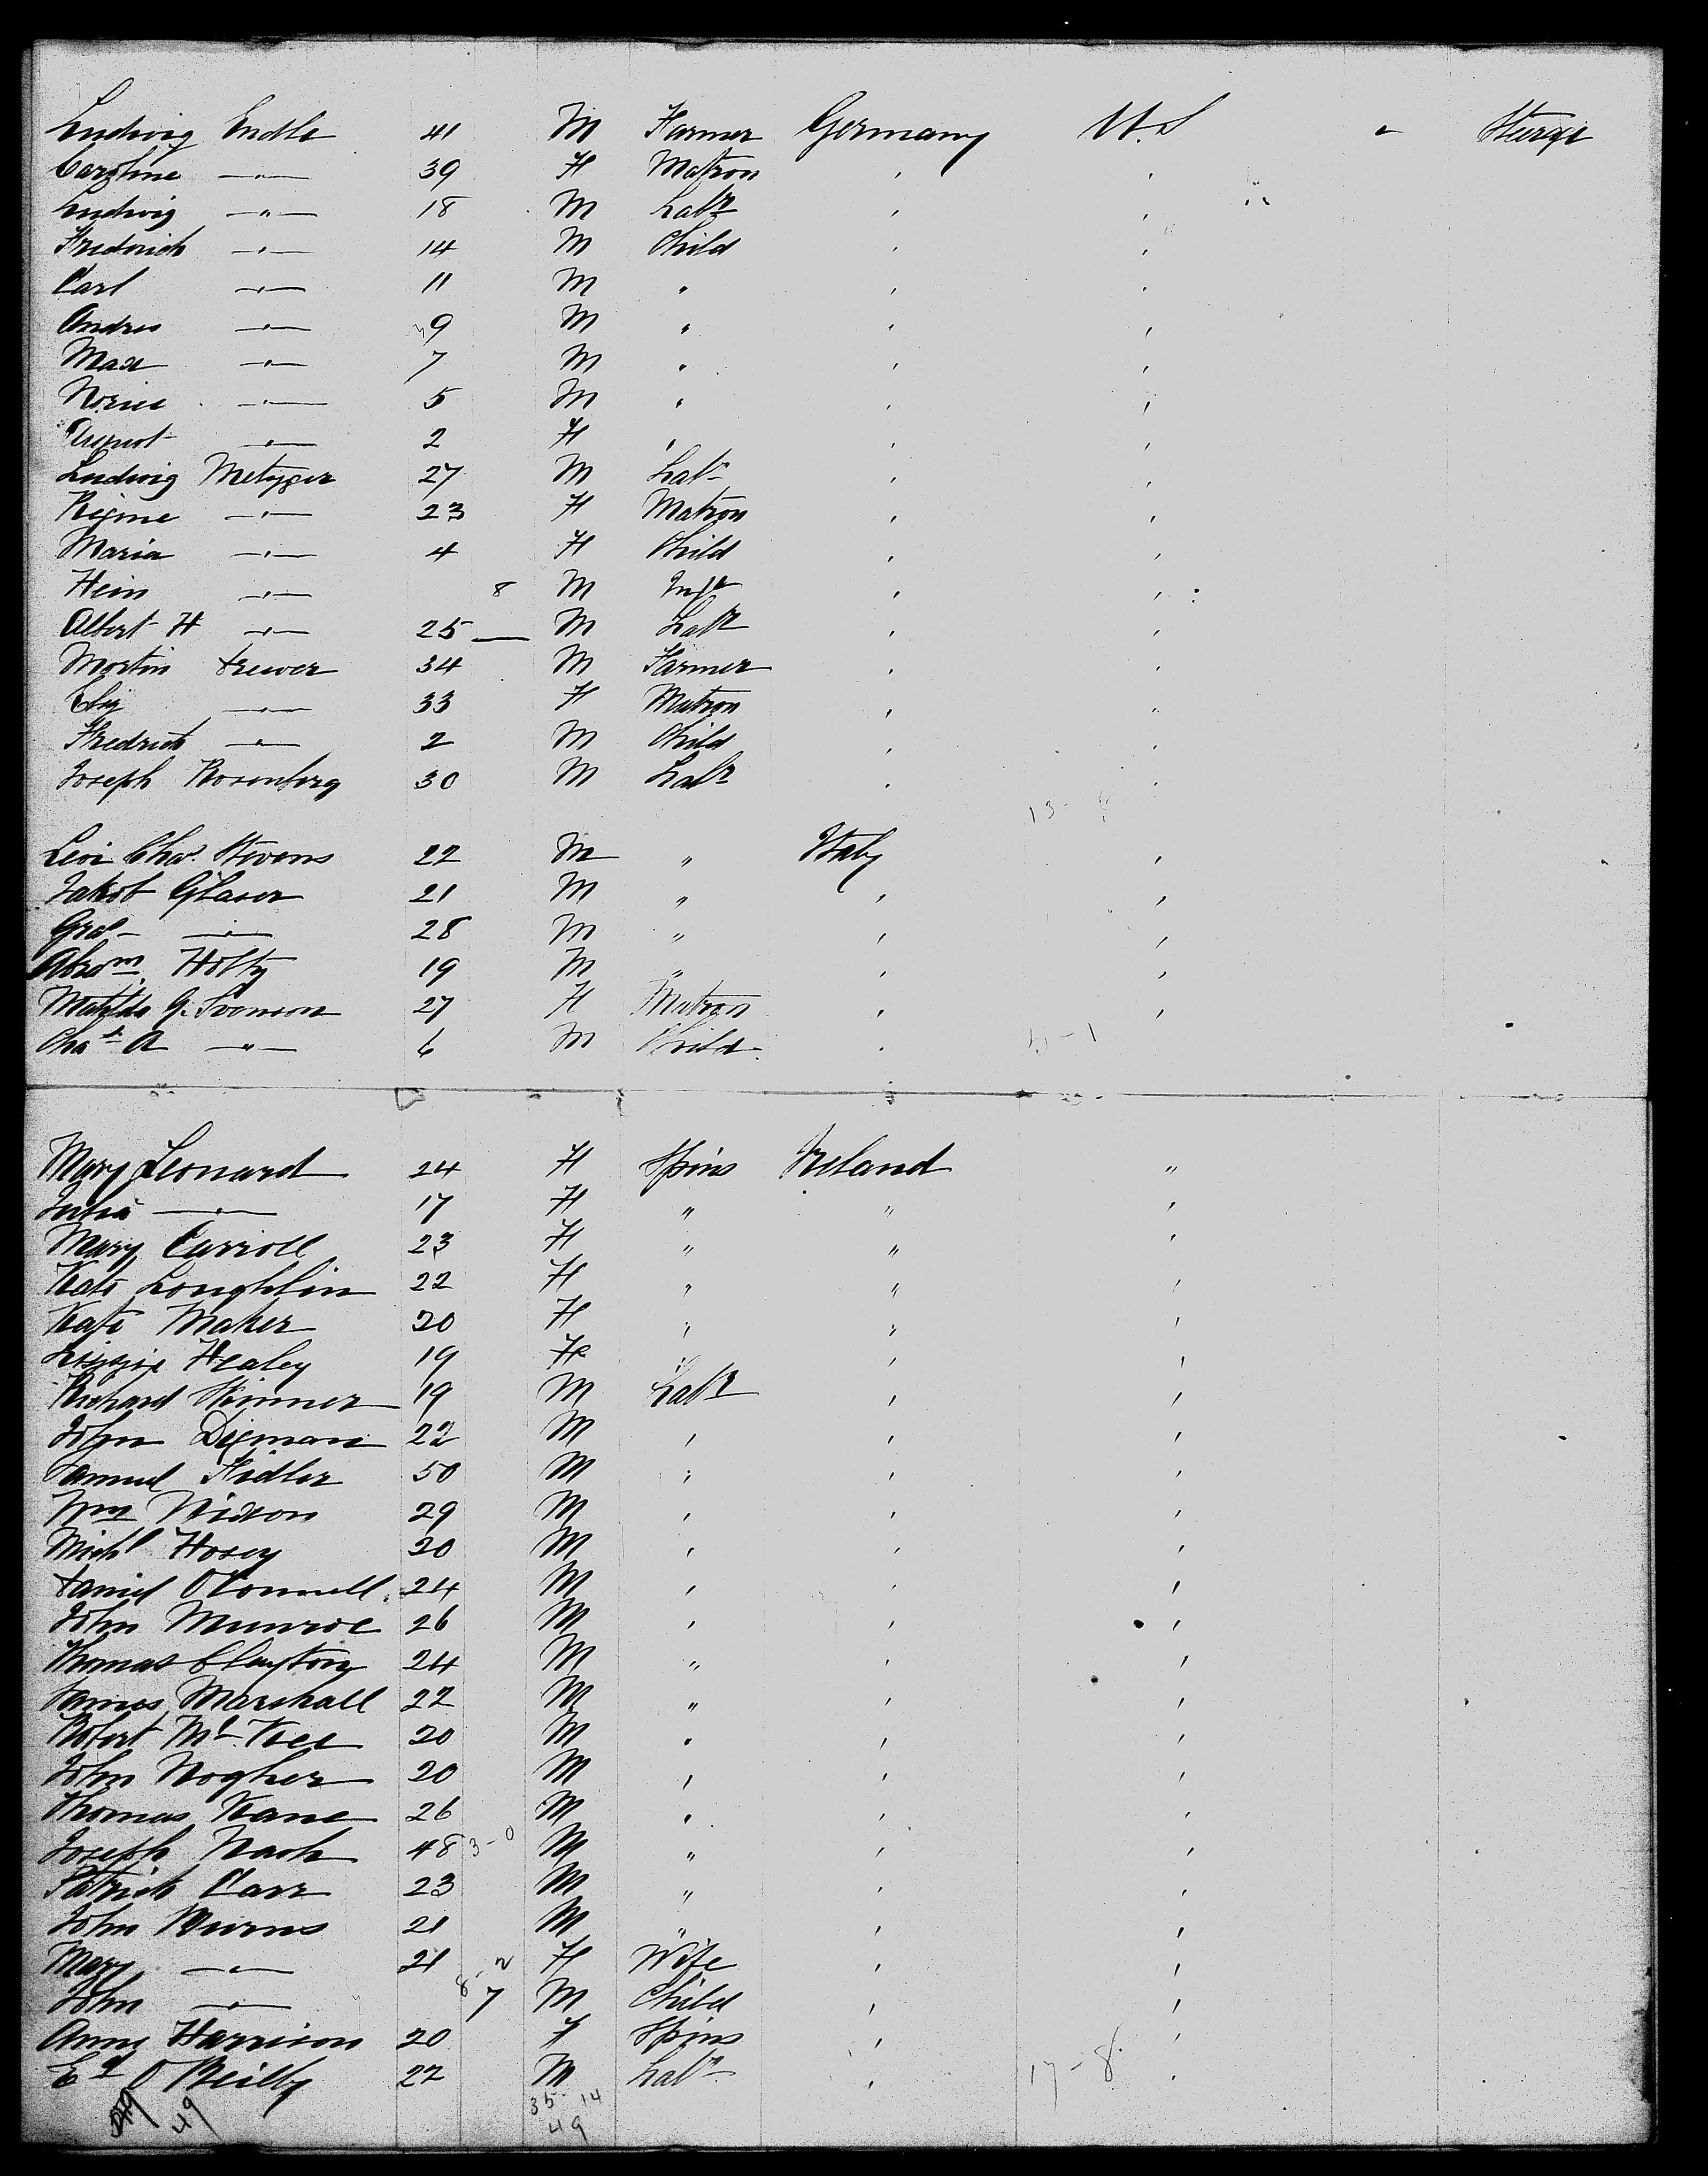 Ludwig Endle 41 M Farmer Germany U.S " Steerge
Caroline —"— 39 F Matron " "
Ludwig —"— 18 M Labr " "
Fredrich —"— 14 M Child " "
Carl —"— 11 M " " "
Andres —"— 9 M " " "
Max —"— 7 M " " "
—"— 5 M " " "
August —"— 2 F " " "
Ludwig Metzger 27 M Labr " "
Regine —"— 23 F Matron " "
Maria —"— 4 F Child " "
Hein —"— 8 M Inft " "
Albert H —"— 25 — M Labr " "
Martin 34 M Farmer " "
—"— 33 F Matron " "
Fredrich —"— 2 M Child " "
Joseph Rosenberg 30 M Labr " "
13 -
Levi Chas. Stevens 22 M " Italy "
Jakob Glaser 21 M " " "
—"— 28 M " " "
Abram Holty 19 M " " "
Matilda G. Svenson 27 F Matron " "
Chas A —"— 6 M Child "
Mary Leonard 24 F Spins Ireland "
Julia —"— 17 F " " "
Mary Carroll 23 F " " "
Kate Loughlin 22 F " " "
Kate Maher 20 F " " "
Lizzie Healey 19 F " " "
Richard Skinner 19 M Labr " "
John Digman 22 M " " "
Samuel Fidler 50 M " " "
Wm Nixon 29 M " " "
Michl Hosey 20 M " " "
Daniel O'Connell 24 M " " "
John Munroe 26 M " " "
Thomas Clayton 24 M " " "
James Marshall 22 M " " "
Robert Mc Kee 20 M " " "
John Nogher 20 M " " "
Thomas Kane 26 M " " "
Joseph Nash 48 3-0 M " " "
Patrick Carr 23 M " " "
John Burns 21 M " " "
Mary —"— 21 F Wife " "
John —"— 7 M Child " "
Anny Harrison 20 F Spins " "
Ed O'Reilly 22 M Labr " 17-8 "
49 35-14
49